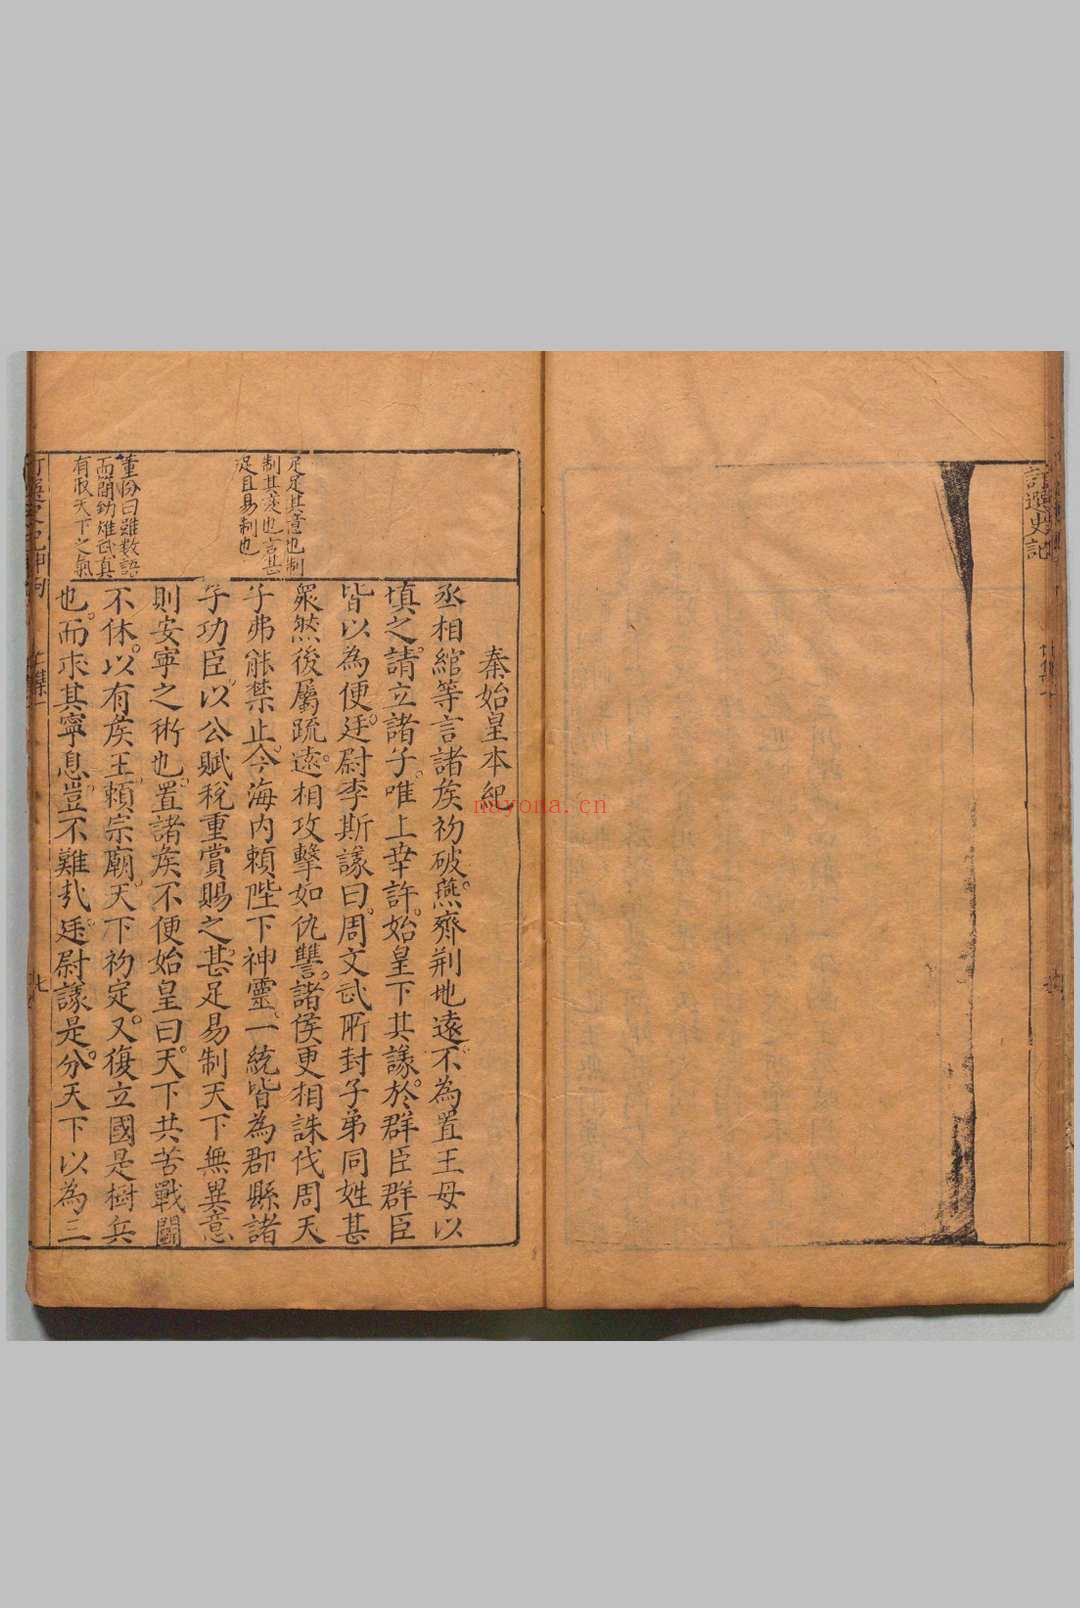 訂選史記
秦始皇本紀
丞相綰等言諸矦初破燕齊荆地遠不為置王毋以
填之請立諸子唯上幸許始皇下其議於群臣群臣
皆以為便廷尉李斯議曰周文武所封子弟同姓甚
衆然後屬疏遠相攻擊如仇讐諸侯更相誅伐周天
子弗能禁止今海内賴陛下神靈一統皆為郡縣諸
子功臣以公賦稅重賞賜之甚足易制天下無異意
則安寜之術也置諸矦不便始皇曰天下共苦戰鬭
不休以有矦王賴宗廟天下初定又復立國是樹兵
也而求其寧息豈不難㢤廷尉議是分天下以為三
足足其意也制
制其侈也言甚
足且易制也
董份曰雖數語
而簡勁雄武真
有取天下之氣
七
nayona.cn